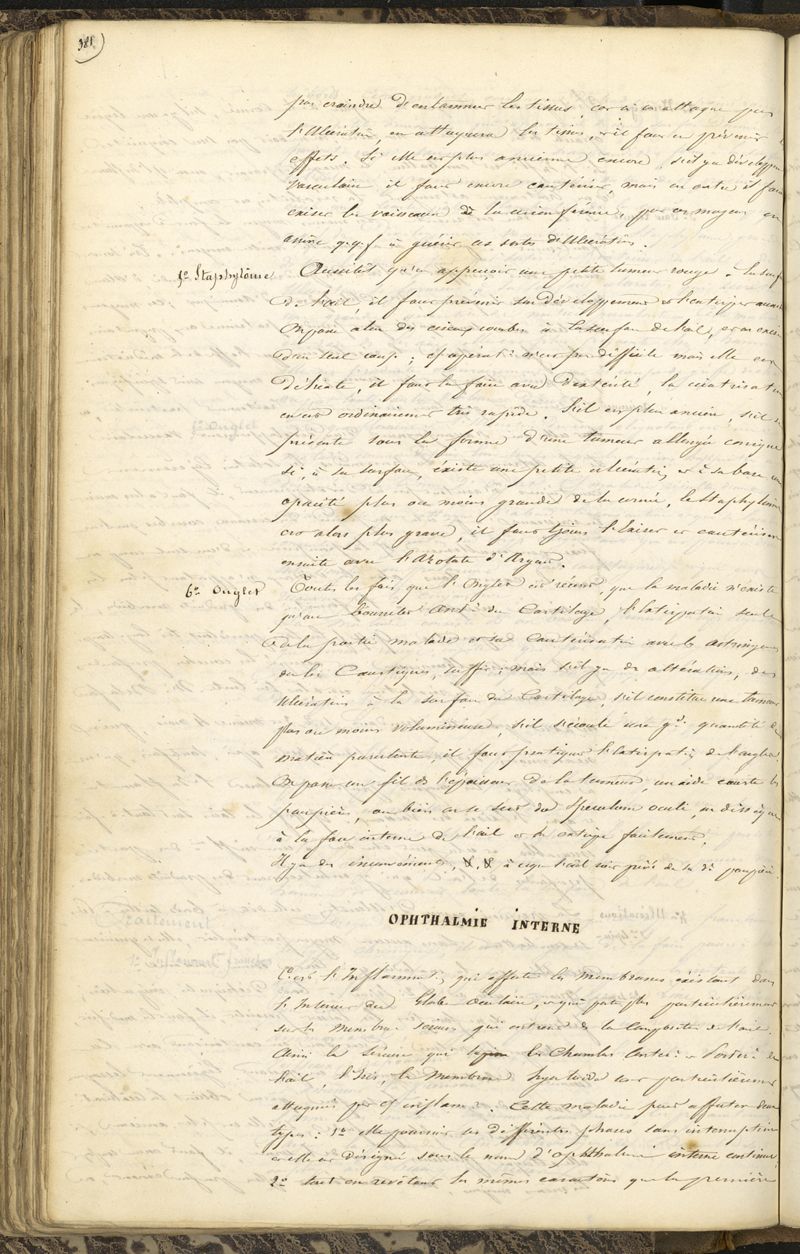 381
pas craindre d'entamer les tissus, car si on attaque pas
l'Ulcération, on attaquera les tissus, et il faut en prévenir les
effets. Si elle est plus ancienne encore, s'il y a développement
vasculaire il faut encore cautériser, mais en outre il faut
exciser les vaisseaux de la circonférence, par ces moyens on
arrive q.q.f. à guérir ces sortes d'Ulcérations.
5° Staphylôme Aussitôt qu'on apperçoit une petite tumeur rouge à la surface
de l'œil, il faut prévenir son développement et l'extirper
On pose alors des ciseaux courbes à la surface de l'œil, et on excise
d'un seul coup; c/ opérat: n'est pas difficile mais elle est
délicate, il faut la faire avec dextérité, la cicatrisation
en est ordinairement très rapide. S'il est plus ancien, s'il se
présente sous la forme d'une tumeur allongée conique
si, à sa surface, existe une petite ulcération, et à sa base une
opacité plus ou moins grande de la cornée, le Staphylôme
est alors plus grave, il faut tjours l'exciser et cautériser
ensuite avec l'Azotate d'Argent.
6° Onglet Toutes les fois que l'Onglet est récent, que la maladie n'existe
qu'au bourrelet antr du Cartilage, l'extirpation seule
de la partie malade et sa cautérisation avec les astringents
ou les Caustiques, suffit; mais s'il y a des altérations, des
Ulcérations à la surface du Cartilage, s'il constitue une tumeur
plus ou moins volumineuse, s'il s'écoule une gde quantité de
matière purulente, il faut pratiquer l'extirpation de l'onglet.
On passe un fil dans l'épaisseur de la tumeur, un aide écarte les
paupières, ou bien on se sert du Speculum oculi, on dissèque
à la face interne de l'œil et on extirpe facilement.
Il y a des inconvénients, à ce que l'œil soit privé de sa 3e paupière.
OPHTHALMIE INTERNE
C'est l'Inflammat: qui affecte les membranes existant dans
l'Intérieur du Globe oculaire, et qui porte plus particulièrement
sur les membres séreuses qui entrent dans la composition de l'œil.
Ainsi la séreuse qui tapisse les Chambres Antér: et Postér: de
l'œil, l'Iris, la Membrane hyaloïde est particulièrement
attaquée par c/ inflamm. Cette maladie peut affecter deux
types: 1° elle parcourt ses différentes phases sans interruption
et elle est désignée sous le nom d'ophthalmie interne continue
2° tout en revêtant les mêmes caractères que la première